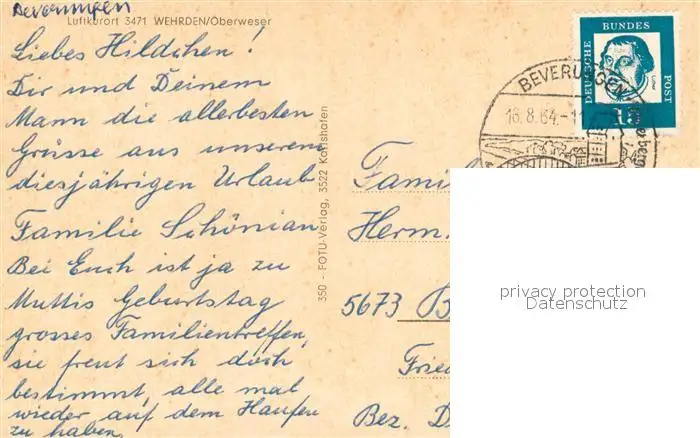 Beverungen
Luftkurort 3471 WEHRDEN/Oberweser
Liebes Hildchen!
Dir und Deinem
Mann die allerbesten
Grüsse aus unserem
diesjährigen Urlaub
Familie Schönian
Bei Euch ist ja zu
Muttis Geburtstag
grosses Familientreffen,
sie freut sich doch
bestimmt, alle mal
wieder auf dem Haufen
zu haben.
350 - FOTU-Verlag, 3522 Karlshafen
DEUTSCHE BUNDES POST
Luther
15
BEVERUNGEN
16.8.64.-11
Famil
Herm.
5673 B
Fried
Bez. D
privacy protection
Datenschutz